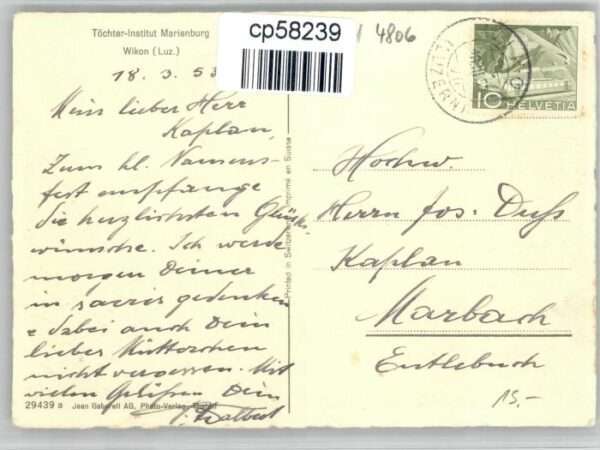 Töchter-Institut Marienburg
Wikon (Luz.)
cp58239
4806
18. 3. 53
Mein lieber Herr
Kaplan,
Zum hl. Namens-
fest empfange
die herzlichsten Glück-
wünsche. Ich werde
morgen Deiner
in sacris gedenken
& dabei auch Dein
lieber Mütterchen
nicht vergessen. Mit
vielen Grüßen Dein
WIKON
(LUZERN)
10 HELVETIA
Hochw.
Herrn Jos: Duss
Kaplan
Marbach
Entlebuch
15.-
Printed in Switzerland - Imprimé en Suisse
29439 a Jean Gaberell AG, Photo-Verlag, Thalwil